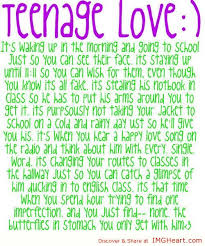 Teenage Love:)
It's waking up in the morning and going to school
Just so You can see their face. its staying up
until 11:11 so You can wish for them, even though
You know its all fake. its stealing his notbook in
class so he has to put his arms around You to
get it. its purpsously not taking Your Jacket to
school on a cold and rainy day just so he'll give
You his. it's When You hear a happy love song on
the radio and think about him with every. Single.
Word. its changing Your routes to classes in
the hallway Just so You can catch a glimpse of
him ducking in to english class. its that time
When You spend hour trying to find one
imperfection. and You find Just-- none. the
butterflies in stomach You only get with him<3
Discover & Share at IMGHeart.com